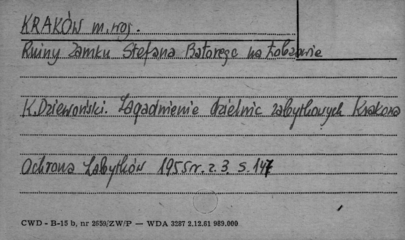 KRAKÓW m. woj.
Ruiny zamku Stefana Batorego na Łobzowie
K. Dziewoński. Zagadnienie dzielnic zabytkowych Krakowa
Ochrona Zabytków 1955 r. z. 3. s. 147
CWD - B-15 b, nr 2639/ZW/P — WDA 3287 2.12.61 989.000